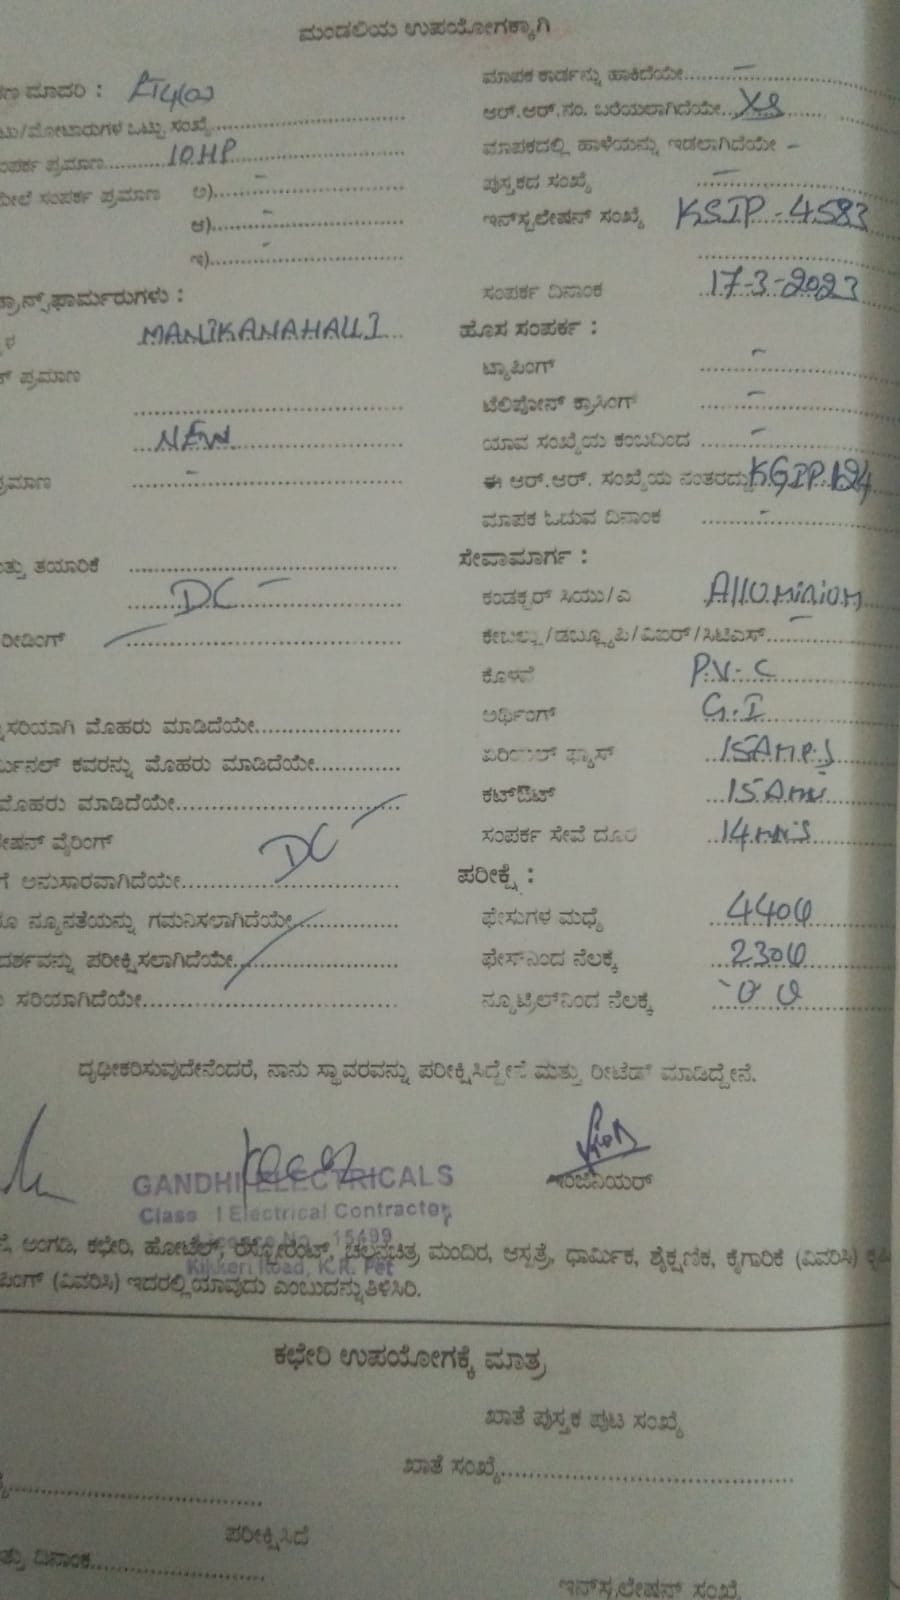 ಮಂಡಲಿಯ ಉಪಯೋಗಕ್ಕಾಗಿ
ಮಾದರಿ :
ಮಾಪಕ ಕಾರ್ಡನ್ನು ಹಾಕಿದೆಯೇ –
ಟು/ಮೋಟಾರುಗಳ ಒಟ್ಟು ಸಂಖ್ಯೆ
ಆರ್.ಆರ್.ನಂ. ಬರೆಯಲಾಗಿದೆಯೇ
ಂಪರ್ಕ ಪ್ರಮಾಣ 10HP
ಮಾಪಕದಲ್ಲಿ ಹಾಳೆಯನ್ನು ಇಡಲಾಗಿದೆಯೇ –
ಮೀಲೆ ಸಂಪರ್ಕ ಪ್ರಮಾಣ ಅ) –
ಪುಸ್ತಕದ ಸಂಖ್ಯೆ –
ಆ) –
ಇನ್‌ಸ್ಟಲೇಷನ್ ಸಂಖ್ಯೆ KSIP-4583
ಇ) –
ಟ್ರಾನ್ಸ್‌ಫಾರ್ಮರುಗಳು :
ಸಂಪರ್ಕ ದಿನಾಂಕ 17-3-2023
ಳ MANIKANAHALLI
ಹೊಸ ಸಂಪರ್ಕ :
ಪ್ರಮಾಣ
ಟ್ಯಾಪಿಂಗ್ –
ಟೆಲಿಫೋನ್ ಕ್ರಾಸಿಂಗ್ –
NEW
ಯಾವ ಸಂಖ್ಯೆಯ ಕಂಬದಿಂದ –
ಪ್ರಮಾಣ –
ಈ ಆರ್.ಆರ್. ಸಂಖ್ಯೆಯ ನಂತರದ್ದು
ಮಾಪಕ ಓದುವ ದಿನಾಂಕ –
ಸೇವಾಮಾರ್ಗ :
ತ್ತು ತಯಾರಿಕೆ
DC –
ಕಂಡಕ್ಟರ್ ಸಿಯು/ಎ Alluminiom
ರೀಡಿಂಗ್
ಕೇಬಲ್ಲು/ಡಬ್ಲ್ಯೂಪಿ/ವಿಐಆರ್/ಸಿಟಿಎಸ್ –
ಕೊಳವೆ P.V.C
ಸರಿಯಾಗಿ ಮೊಹರು ಮಾಡಿದೆಯೇ
ಅರ್ಥಿಂಗ್ G.I
ರ್ಮಿನಲ್ ಕವರನ್ನು ಮೊಹರು ಮಾಡಿದೆಯೇ
ಏರಿಯಲ್ ಫ್ಯೂಸ್ 15Amps
ಮೊಹರು ಮಾಡಿದೆಯೇ
ಕಟ್‌ಔಟ್
ೇಷನ್ ವೈರಿಂಗ್
ಸಂಪರ್ಕ ಸೇವೆ ದೂರ
ಗೆ ಅನುಸಾರವಾಗಿದೆಯೇ DC –
ಪರೀಕ್ಷೆ :
ನ್ಯೂನತೆಯನ್ನು ಗಮನಿಸಲಾಗಿದೆಯೇ
ಫೇಸುಗಳ ಮಧ್ಯೆ 440V
ದರ್ಶವನ್ನು ಪರೀಕ್ಷಿಸಲಾಗಿದೆಯೇ
ಫೇಸ್‌ನಿಂದ ನೆಲಕ್ಕೆ 230V
ಸರಿಯಾಗಿದೆಯೇ
ನ್ಯೂಟ್ರಲ್‌ನಿಂದ ನೆಲಕ್ಕೆ 0 V
ದೃಢೀಕರಿಸುವುದೇನೆಂದರೆ, ನಾನು ಸ್ಥಾವರವನ್ನು ಪರೀಕ್ಷಿಸಿದ್ದೇನೆ ಮತ್ತು ರೀಟೆಡ್ ಮಾಡಿದ್ದೇನೆ.
GANDHI ELECTRICALS
Class I Electrical Contractor
ಇಂಜಿನಿಯರ್
License No. 15499
Kikkeri Road, K.R. Pet
ಅಂಗಡಿ, ಕಛೇರಿ, ಹೋಟೆಲ್, ರೆಸ್ಟೋರೆಂಟ್, ಚಲನಚಿತ್ರ ಮಂದಿರ, ಆಸ್ಪತ್ರೆ, ಧಾರ್ಮಿಕ, ಶೈಕ್ಷಣಿಕ, ಕೈಗಾರಿಕೆ (ವಿವರಿಸಿ)
ಪಿಂಗ್ (ವಿವರಿಸಿ) ಇದರಲ್ಲಿ ಯಾವುದು ಎಂಬುದನ್ನು ತಿಳಿಸಿರಿ.
ಕಛೇರಿ ಉಪಯೋಗಕ್ಕೆ ಮಾತ್ರ
ಖಾತೆ ಪುಸ್ತಕ ಪುಟ ಸಂಖ್ಯೆ
ಖಾತೆ ಸಂಖ್ಯೆ
ಪರೀಕ್ಷಿಸಿದೆ
ತ್ತು ದಿನಾಂಕ
ಇನ್‌ಸ್ಟಲೇಷನ್ ಸಂಖ್ಯೆ